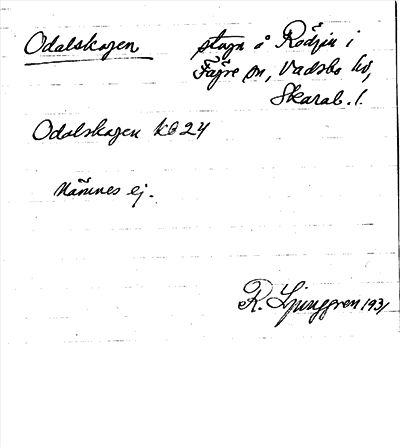 Odalskogen
skogn å Rödjin i
Fägre sn, Vadsbo hd,
Skarab. l.
Odalskogen KB 24
Nämnes ej.
R. Ljunggren 1931